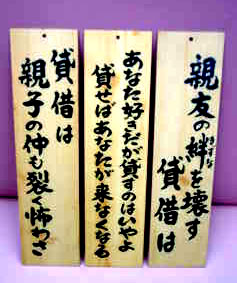 親友の絆を壊す
きずな
貸借は
あなた好きだが貸すのはいやよ
貸せばあなたが来なくなる
貸借は
親子の仲も裂く怖わざ